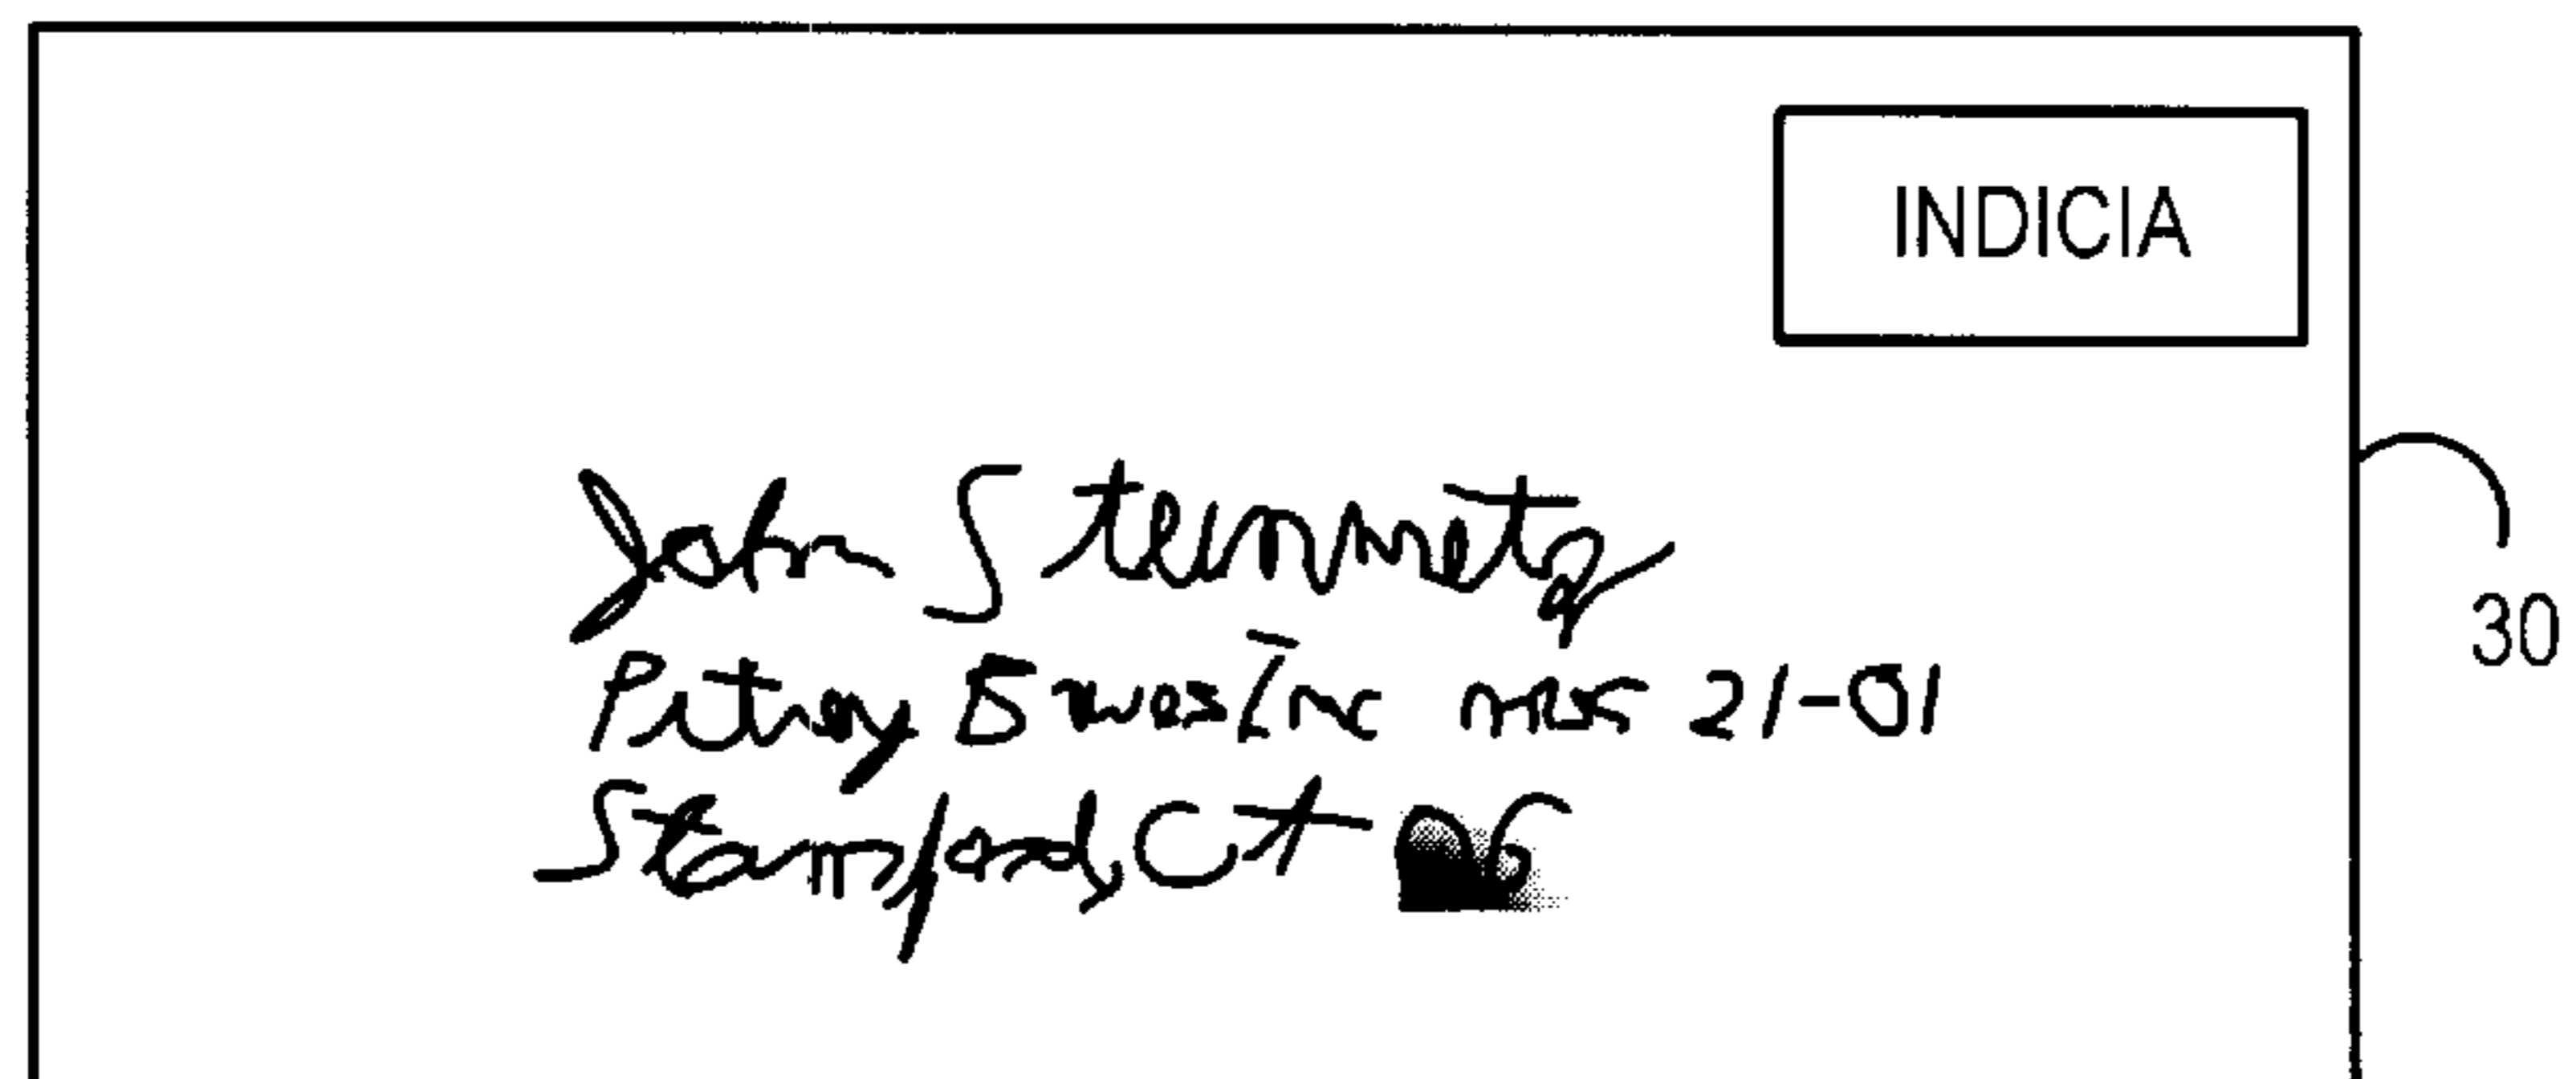 INDICIA
John Steinmetz
30
Pitney Bowes Inc 21-01
Stamford, CT 06